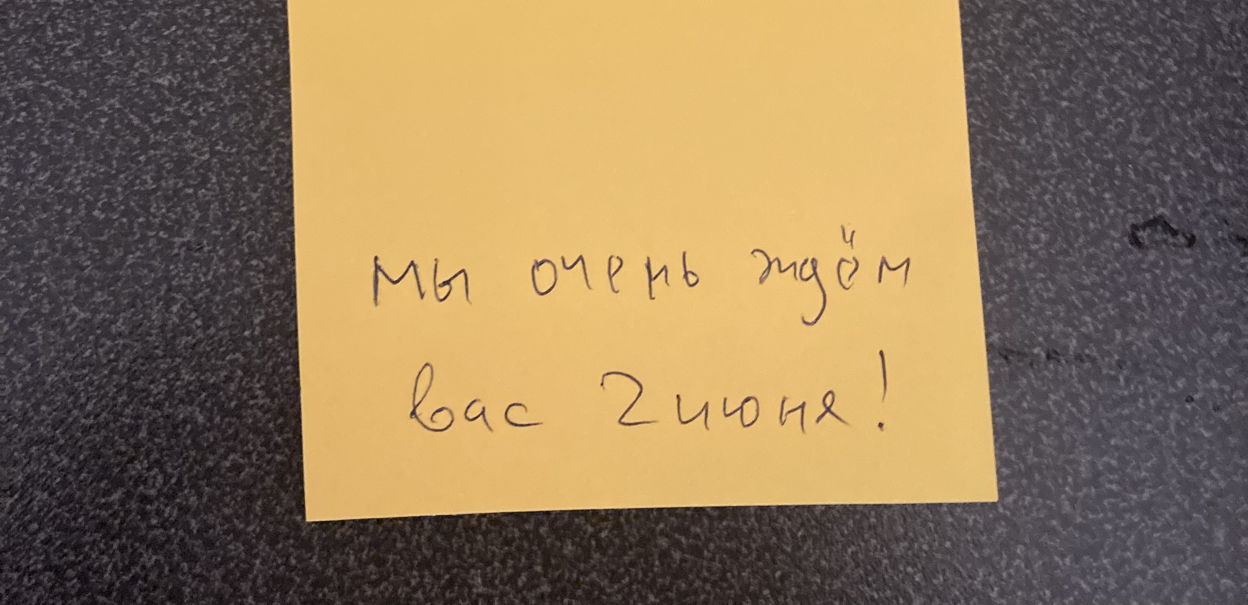 мы очень ждём
вас 2 июня!